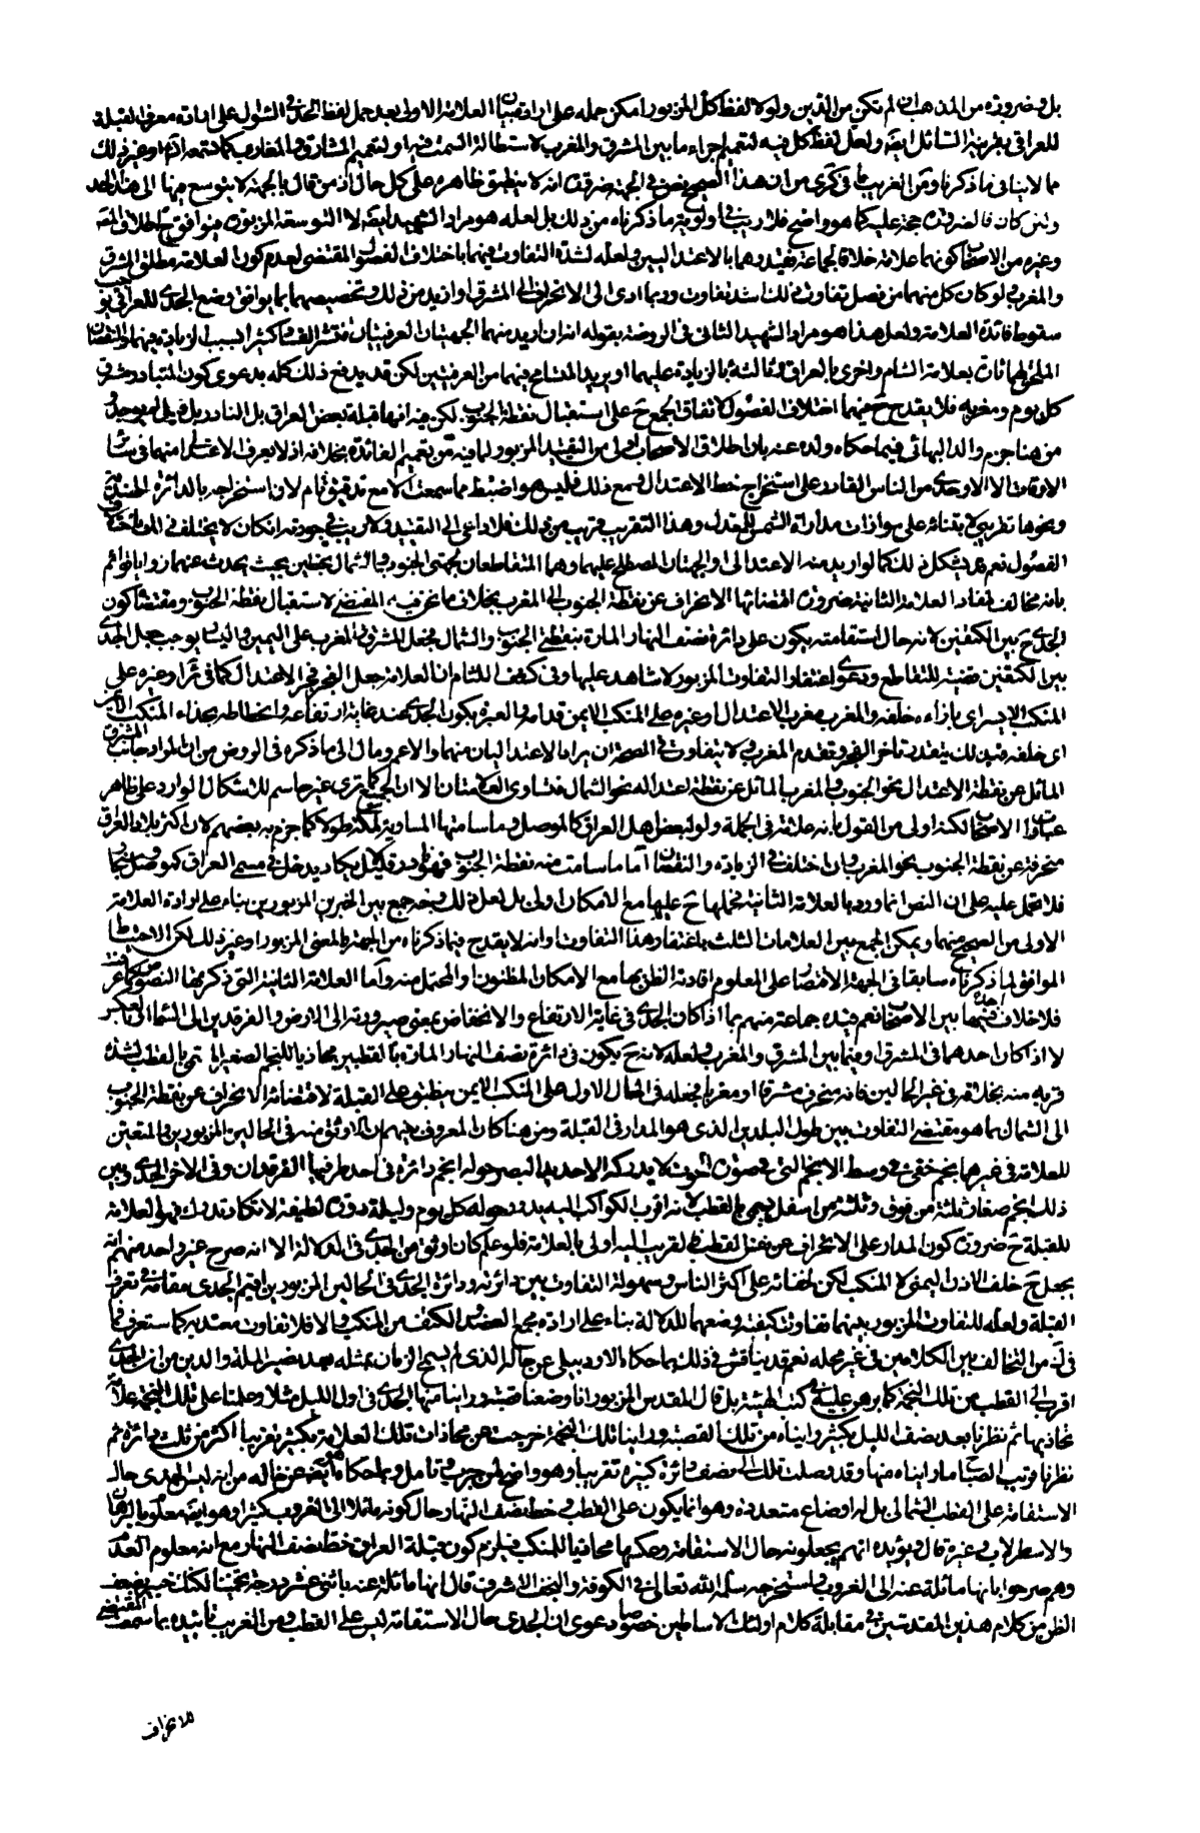 بل وضرورة من المذهب ان لم تكن من الدين ولولا لفظ كل المزبور امكن حمله على ارادة بيان العلامة الاولى بعد حمل لفظ الحد في السؤال على ارادة معرفة القبلة
للعراقي بقرينة السائل ايضا ولعل لفظ كل فيه لتعميم اجزاء ما بين المشرق والمغرب لاستطالة السمت فيه او لتعميم المشارق والمغارب كما تسمعه او غير ذلك
مما لا ينافي ما ذكرنا ومن الغريب ما في كرى من ان هذا الصحيح نص في الجهة ضرورة انه لا ينطبق ظاهره على كل حال اذ من قال بالجهة لا يتوسع فيها الى هذا الحد
وان كان فالضرورة حجة عليه كما هو واضح فلا ريب في اولوية ما ذكرناه من ذلك بل لعله هو مراد الشهيد ايضا لا التوسعة المزبورة فيوافق ح اطلاق المص
وغيره من الاصحاب كونهما علامة خلافا لجماعة فقيدوهما بالاعتداليين ولعله لشدة التفاوت فيهما باختلاف الفصول المقتضي لعدم كون العلامة مطلق المشرق
والمغرب لو كان كل منهما من فصل تفاوت ذلك اشد تفاوت وربما ادى الى الانحراف الى المشرق او ازيد من ذلك وتخصيصهما بما يوافق وضع الجدي للعراقي يوجب
سقوط فائدة العلامة ولعل هذا هو مراد الشهيد الثاني في الروضة بقوله انه ان اريد منهما الجهتان العرفيتان انتشر الفساد كثيرا بسبب الزيادة فيهما والنقصان
الملحق لهما تارة بعلامة الشام واخرى بالعراق وثالثة بالزيادة عليهما او يريد المتسامح فيهما من العرفيتين لكن قد يدفع ذلك كله بدعوى كون المتبادر مشرق
كل يوم ومغربه فلا يقدح ح فيهما اختلاف الفصول لاتفاق الجميع ح على استقبال نقطة الجنوب لكن فيه انها قبلة بعض العراق بل النادر بل قيل لم يوجد و
من هنا جزم والد البهائي فيما حكاه ولده عنه بان اطلاق الاصحاب اولى من التقييد المزبور لما فيه من تعميم الفائدة بخلافه اذ لا يعرف الاعتدال منهما في سائر
الاوقات الا الاوحدي من الناس القادر على استخراج خط الاعتدال ومع ذلك فليس هو اضبط مما سمعت الا مع تدقيق تام لان استخراجه بالدائرة الهندية
ونحوها تقريبي لابتنائه على موازات مدارات الشمس للمعدل وهذا التقريب قريب من ذلك فلا داعي الى التقييد ولا ريب في جودته ان كان لا يختلف في المساحة
الفصول نعم قد يشكل ذلك كما لو اريد منه الاعتدالي او الجهتان المصطلح عليهما وهما المتقاطعان بجهتي الجنوب والشمال بخطين بحيث يحدث عنهما زوايا قوائم
بانه مخالف لمفاد العلامة الثانية ضرورة اقتضائها الانحراف عن نقطة الجنوب الى المغرب بخلاف ما نحن فيه المقتضي لاستقبال نقطة الجنوب ومقتضاه كون
الجدي ح بين الكتفين لانه حال استقامته يكون على دائرة نصف النهار المارة بنقطة الجنوب والشمال فجعل المشرق والمغرب على اليمين واليسار يوجب جعل الجدي
بين الكتفين قضية للتقاطع ودعوى اغتفار التفاوت المزبور لا شاهد عليها وفي كشف اللثام ان العلامة جعل الفجر فجر الاعتدال كما في ئر او غيره على
المنكب الايسر اي بازاءه خلفه والمغرب مغرب الاعتدال او غيره على المنكب الايمن قدامه والعبرة بكون الجدي عند غاية ارتفاعه وانحطاطه بحذاء المنكب الايمن
اي خلفه فبذلك يتقدر تأخر الفجر وتقدم المغرب ولا يتفاوت في الصحة ان يراد الاعتداليان منهما والاعم ومال الى ما ذكره في الروض من ان المراد جانب المشرق
المائل عن نقطة الاعتدال نحو الجنوب والمغرب المائل عن نقطة اعتداله نحو الشمال فتساوى العلامتان الا ان الجميع كما ترى غير حاسم للاشكال الوارد على ظاهر
عبارات الاصحاب لكنه اولى من القول بانه علامة في الجملة ولو لبعض اهل العراق كالموصل وما سامتها المساوية لمكة طولا كما جزم به بعضهم لان اكثر بلاد العراق
منحرفة عن نقطة الجنوب نحو المغرب وان اختلفت في الزيادة والنقصان اما ما سامت منه نقطة الجنوب فهو نادر قليل لا يكاد يدخل في مسمى العراق كموصل وسنجار
فلا يحمل عليه على ان النص انما ورد بالعلامة الثانية فحملها ح عليها مع الامكان اولى بل لعل ذلك وجه جمع بين الخبرين المزبورين بناء على ارادة العلامة
الاولى من الصحيح منهما ويمكن الجمع بين العلامات الثلث باغتفار هذا التفاوت وانه لا يقدح فيما ذكرناه من الجهة بالمعنى المزبور او غير ذلك لكن الاحتياط
الموافق لما ذكرناه سابقا في الجهة الاقتصار على المعلوم افادته الظن بها مع الامكان المظنون او المحتمل منه واما العلامة الثانية التي ذكر بها النصوص كما عرفت
فلا خلاف فيها بين الاصحاب نعم قيده جماعة منهم بما اذا كان الجدي في غاية الارتفاع والانخفاض بمعنى صيرورته الى الارض والفرقدين الى السماء او بالعكس
لا اذا كان احدهما في المشرق او فيما بين المشرق والمغرب ولعله لانه ح يكون في دائرة نصف النهار المارة بالقطبين محاذيا للنجم الصغير المسمى بالقطب لشدة
قربه منه بخلافه في غير الحالين فانه منحرف مشرقا او مغربا فجعله في الحال الاول على المنكب الايمن ينطبق على القبلة لاقتضائه الانحراف عن نقطة الجنوب
الى الشمال بما هو مقتضى التفاوت بين طول البلدين الذي هو المدار في القبلة ومن هنا كان المعروف بينهم ان الاوثق منه في الحالين المزبورين والمتعين
للعلامة في غيرهما نجم خفي في وسط الانجم التي في صورة الحوت لا يدركه الا حديد البصر حوله انجم دائرة في احد طرفيها الفرقدان وفي الاخر الجدي وبين
ذلك انجم صغار ثلثة من فوق وثلثة من اسفل يسمى بالقطب لانه اقرب الكواكب اليه يدور حوله كل يوم وليلة دورة لطيفة لا تكاد تدرك فهو العلامة
للقبلة ح ضرورة كون المدار على الانحراف عن نفس القطب فالقريب اليه اولى بالعلامة فلو علم كان اوثق من الجدي في الدلالة الا انه صرح غير واحد منهم انه
يجعل ح خلف الاذن اليمنى لا المنكب لكن لخفائه على اكثر الناس وسهولة التفاوت بين دائرته ودائرة الجدي في الحالين المزبورين اقيم الجدي مقامه في تعرف
القبلة ولعله للتفاوت المزبور بينهما تفاوت كيفية وضعهما للدلالة بناء على ارادة مجمع العضد والكتف من المنكب والا فلا تفاوت معتد به كما ستعرف فما
في لك من التخالف بين الكلامين في غير محله نعم قد يناقش في ذلك بما حكاه الاردبيلي عن خاله الذي لم يسمح الزمان بمثله بعد نصير الملة والدين من ان الجدي
اقرب الى القطب من تلك النجمة كما برهن عليه في كتب الهيئة بل قال المقدس المزبور انا وضعنا قصبة ورأينا منها الجدي في اول الليل مثلا وعلمنا على تلك النجمة علامة
نحاذيها ثم نظرنا بعد نصف الليل بكثير ورأيناه من تلك القصبة ورأينا تلك النجمة خرجت عن محاذات تلك العلامة بكثير تقريبا اكثر من ثلث دائرة ثم
نظرنا قريب الصباح ما رأيناه منها وقد وصلت تلك الى نصف دائرة كبيرة تقريبا وهو واضح لمن جرب وتأمل وبما حكاه ايضا عن خاله من انه ليس للجدي حال
الاستقامة على القطب الشمالي بل له اوضاع متعددة وهو انما يكون على القطب وخط نصف النهار حال كونه مائلا الى الغروب كثيرا وهو ايضا معلوم بالبرهان
والاسطرلاب وغيره قال ويؤيده انهم يجعلونه حال الاستقامة وعكسها محاذيا للمنكب فيلزم كون قبلة العراق خط نصف النهار مع انه معلوم العدم
وهم صرحوا بانها مائلة عنه الى الغروب واستخرجه سلمه الله تعالى في الكوفة والنجف الاشرف قال انها مائلة عنه باثني عشر درجة تخمينا لكنك خبير بضعف
الظن من كلام هذين المقدسين في مقابلة كلام اولئك الاساطين خصوصا دعوى ان الجدي حال الاستقامة ليس على القطب ومن الغريب تأييده بما سمعت المقتضي
للانحراف